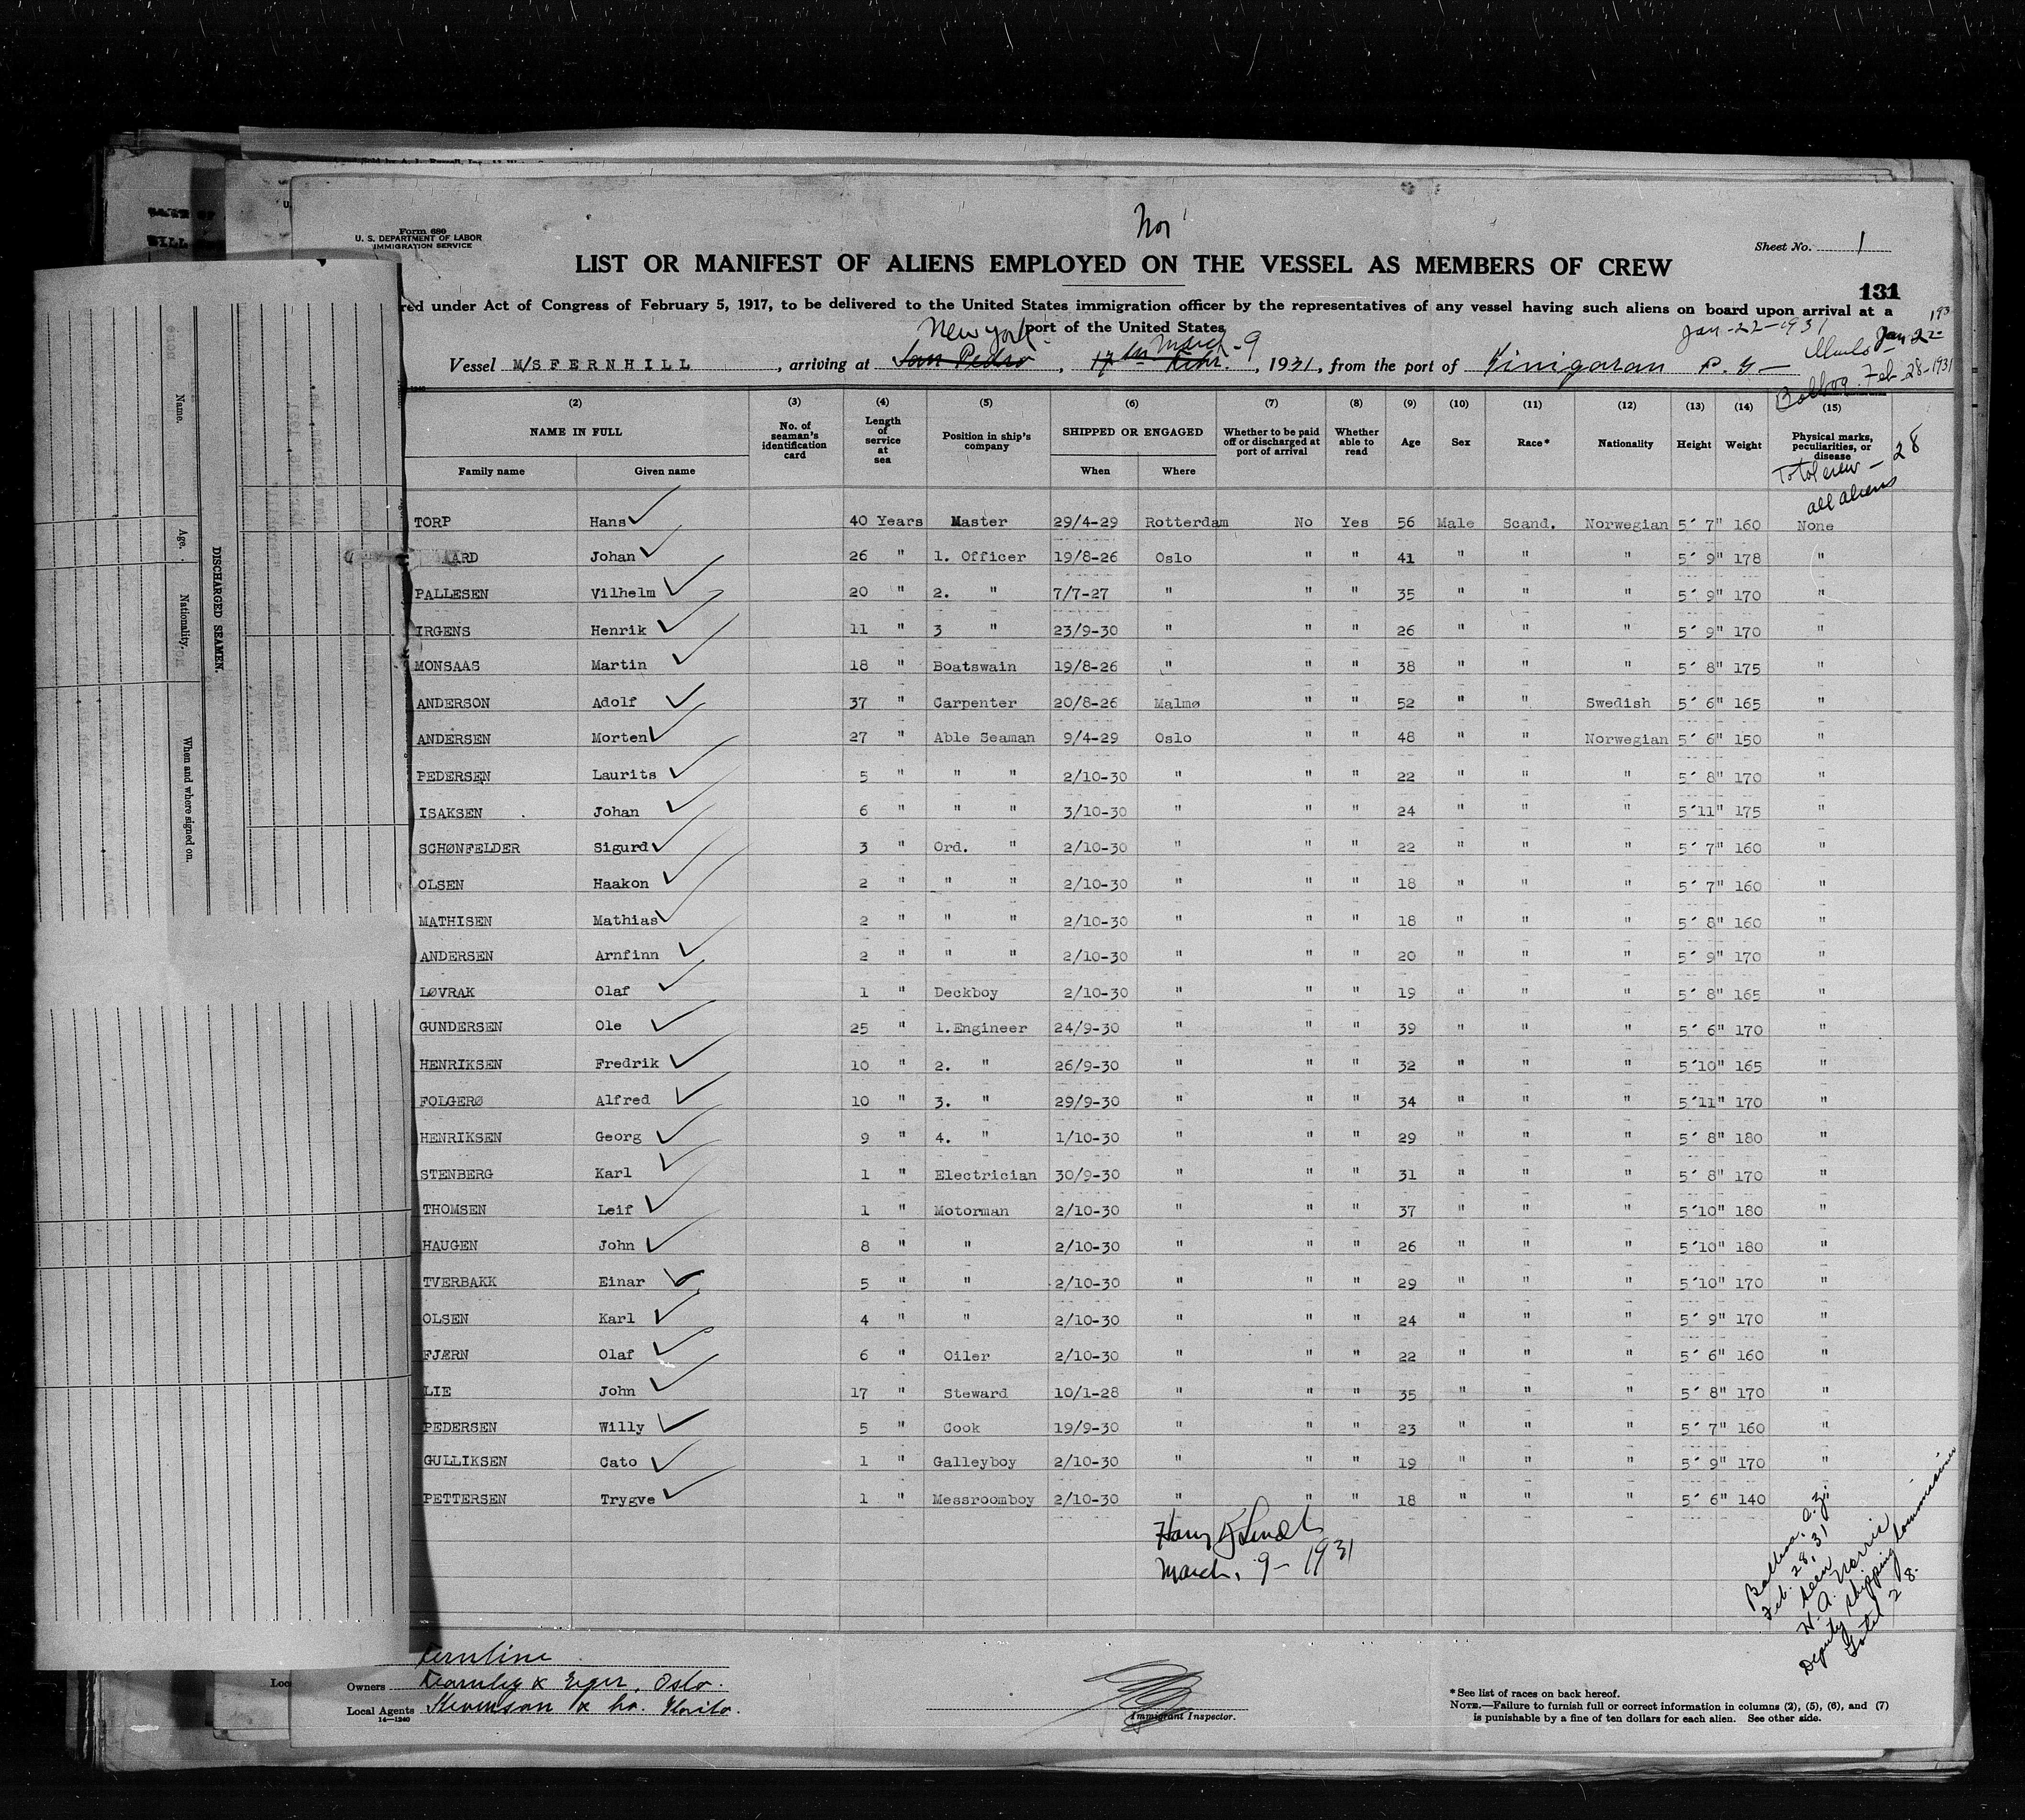 Form 680
U. S. DEPARTMENT OF LABOR
IMMIGRATION SERVICE
Nor
Sheet No. 1
LIST OR MANIFEST OF ALIENS EMPLOYED ON THE VESSEL AS MEMBERS OF CREW
131
red under Act of Congress of February 5, 1917, to be delivered to the United States immigration officer by the representatives of any vessel having such aliens on board upon arrival at a
port of the United States
New York March - 9 Jan-22-1931 Jan 22-
Vessel M/S FERNHILL, arriving at San Pedro, 17th Febr., 1931, from the port of P.I.
Balboa. Feb-28-1931
(2) (3) (4) (5) (6) (7) (8) (9) (10) (11) (12) (13) (14) (15)
NAME IN FULL No. of seaman's identification card Length of service at sea Position in ship's company SHIPPED OR ENGAGED Whether to be paid off or discharged at port of arrival Whether able to read Age Sex Race* Nationality Height Weight Physical marks, peculiarities, or disease
Family name Given name When Where
Total crew - 28
all aliens
TORP Hans 40 Years Master 29/4-29 Rotterdam No Yes 56 Male Scand. Norwegian 5' 7" 160 None
ARD Johan 26 " 1. Officer 19/8-26 Oslo " " 41 " " " 5' 9" 178 "
PALLESEN Vilhelm 20 " 2. " 7/7-27 " " " 35 " " " 5' 9" 170 "
IRGENS Henrik 11 " 3 " 23/9-30 " " " 26 " " " 5' 9" 170 "
MONSAAS Martin 18 " Boatswain 19/8-26 " " " 38 " " " 5' 8" 175 "
ANDERSON Adolf 37 " Carpenter 20/8-26 Malmø " " 52 " " Swedish 5' 6" 165 "
ANDERSEN Morten 27 " Able Seaman 9/4-29 Oslo " " 48 " " Norwegian 5' 6" 150 "
PEDERSEN Laurits 5 " " " 2/10-30 " " " 22 " " " 5' 8" 170 "
ISAKSEN Johan 6 " " " 3/10-30 " " " 24 " " " 5'11" 175 "
SCHØNFELDER Sigurd 3 " Ord. " 2/10-30 " " " 22 " " " 5' 7" 160 "
OLSEN Haakon 2 " " " 2/10-30 " " " 18 " " " 5' 7" 160 "
MATHISEN Mathias 2 " " " 2/10-30 " " " 18 " " " 5' 8" 160 "
ANDERSEN Arnfinn 2 " " " 2/10-30 " " " 20 " " " 5' 9" 170 "
LØVRAK Olaf 1 " Deckboy 2/10-30 " " " 19 " " " 5' 8" 165 "
GUNDERSEN Ole 25 " 1.Engineer 24/9-30 " " " 39 " " " 5' 6" 170 "
HENRIKSEN Fredrik 10 " 2. " 26/9-30 " " " 32 " " " 5'10" 165 "
FOLGERØ Alfred 10 " 3. " 29/9-30 " " " 34 " " " 5'11" 170 "
HENRIKSEN Georg 9 " 4. " 1/10-30 " " " 29 " " " 5' 8" 180 "
STENBERG Karl 1 " Electrician 30/9-30 " " " 31 " " " 5' 8" 170 "
THOMSEN Leif 1 " Motorman 2/10-30 " " " 37 " " " 5'10" 180 "
HAUGEN John 8 " " 2/10-30 " " " 26 " " " 5'10" 180 "
TVERBAKK Einar 5 " " 2/10-30 " " " 29 " " " 5'10" 170 "
OLSEN Karl 4 " " 2/10-30 " " " 24 " " " 5' 9" 170 "
FJÆRN Olaf 6 " Oiler 2/10-30 " " " 22 " " " 5' 6" 160 "
LIE John 17 " Steward 10/1-28 " " " 35 " " " 5' 8" 170 "
PEDERSEN Willy 5 " Cook 19/9-30 " " " 23 " " " 5' 7" 160 "
GULLIKSEN Cato 1 " Galleyboy 2/10-30 " " " 19 " " " 5' 9" 170 "
PETTERSEN Trygve 1 " Messroomboy 2/10-30 " " " 18 " " " 5' 6" 140
March, 9- 1931
Balboa, C.Z.
Feb. 28, 31
Seen
W. A. Norris
Deputy Shipping Commissioner
Total 28.
Fernline
Owners Fearnley & Eger, Oslo.
Local Agents & Co. Iloilo.
14—1240
Immigrant Inspector.
* See list of races on back hereof.
NOTE.—Failure to furnish full or correct information in columns (2), (5), (6), and (7)
is punishable by a fine of ten dollars for each alien. See other side.
DISCHARGED SEAMEN.
Name. Age. Nationality. When and where signed on.